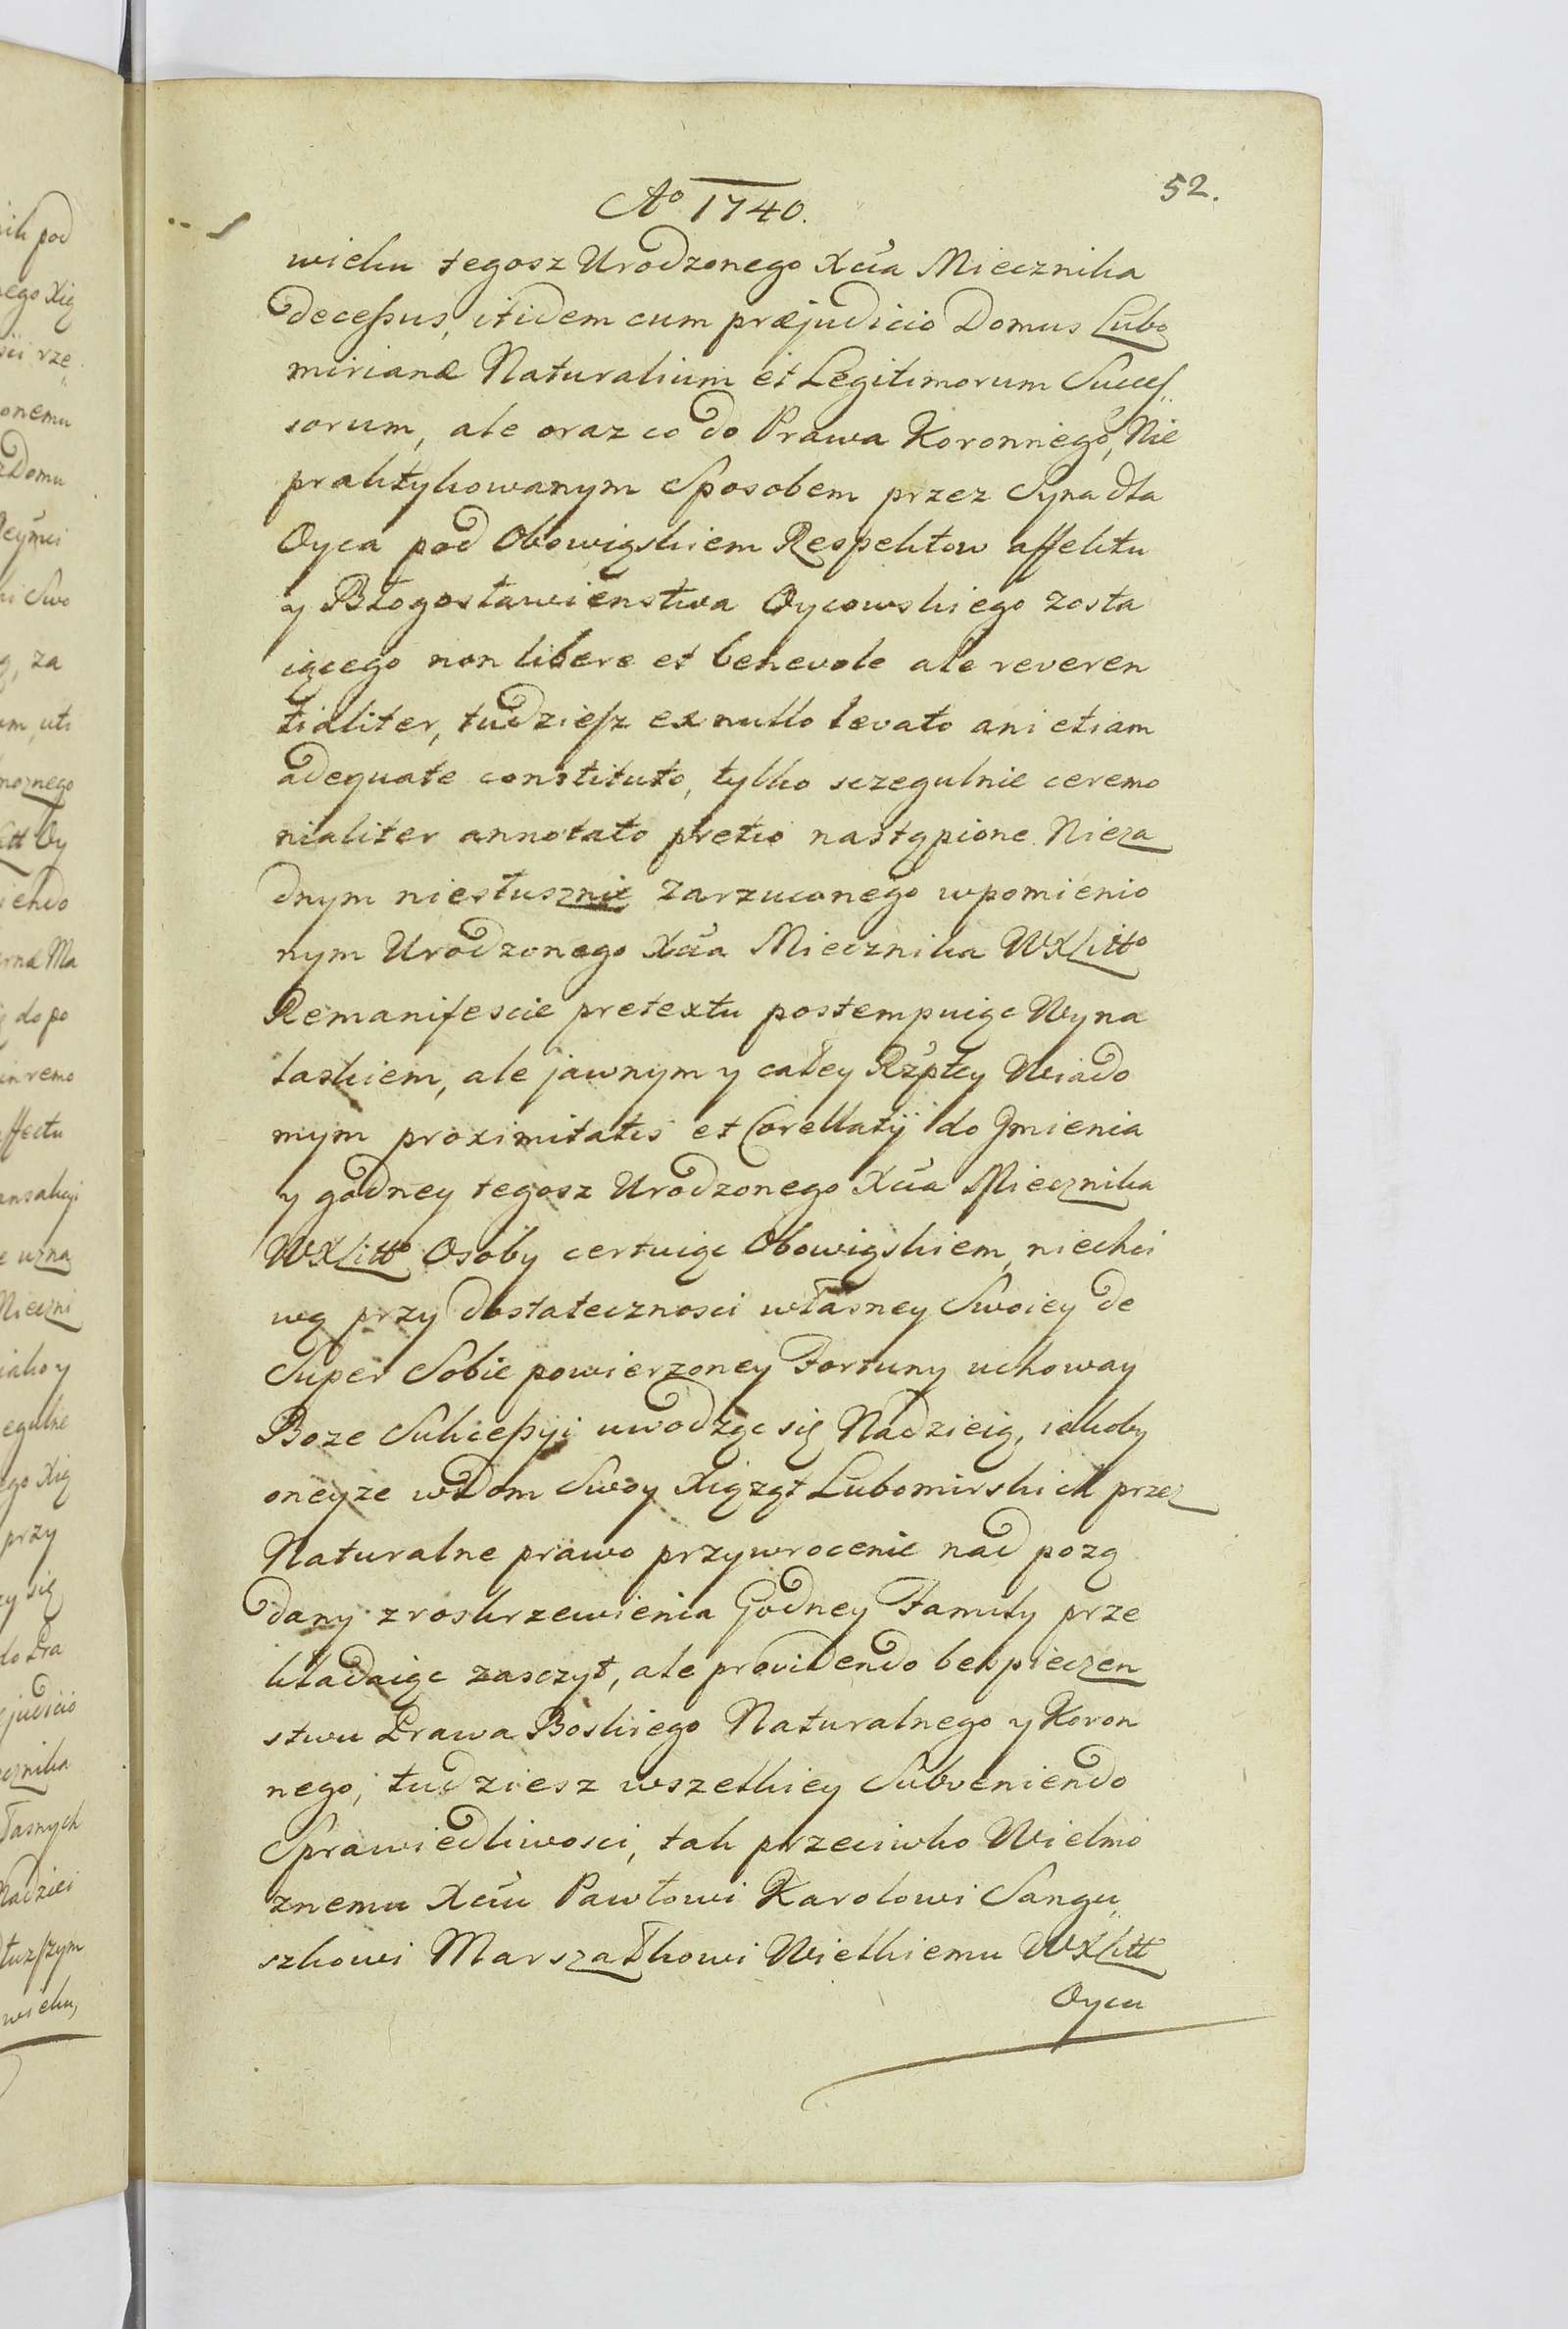 52.
Ao 1740.
wieku tegosz Urodzonego Xcia Miecznika
decessus, itidem cum præjudicio Domus Lubo
mirianæ Naturalium et Legitimorum Succes
sorum, ale oraz co do Prawa Koronnego, Nie
praktykowanym Sposobem przez Syna dla
Oyca pod Obowiąskiem Respektow affektu
y Błogosławienstwa Oycowskiego zosta
iącego non libere et benevole ale reveren
tialiter, tudziesz ex nullo levato ani etiam
adequate constituto, tylko sczegulnie ceremo
nialiter annotato pretio nastąpione Nieza
dnym niesłusznie zarzuconego wpomienio
nym Urodzonego Xcia Miecznika WXLitto
Remanifescie pretextu postempuiąc Wyna
laskiem, ale jawnym y całey Rzpltey Wiado
mym proximitatis et Corellatÿ do Jmienia
y godney tegosz Urodzonego Xcia Miecznika
WXLitto Osoby certuiąc Obowiąskiem, niechci
wą przy dostatecznosci własney Swoiey de
Super Sobie powierzoney Fortuny uchoway
Boze Sukcessyi uwodząc się Nadzieią, iakoby
oneyze w Dom Swoy Xiąząt Lubomirskich przez
Naturalne prawo przywrocenie nad pozą
dany zroskrzewienia Godney Familÿ prze
kładaiąc zasczyt, ale providendo bespieczen
stwu Prawa Boskiego Naturalnego y Koron
nego, tudziesz wszelkiey Subveniendo
Sprawiedliwosci, tak przeciwko Wielmo
znemu Xciu Pawłowi Karolowi Sangu
szkowi Marszałkowi Wielkiemu WXLitt
Oycu